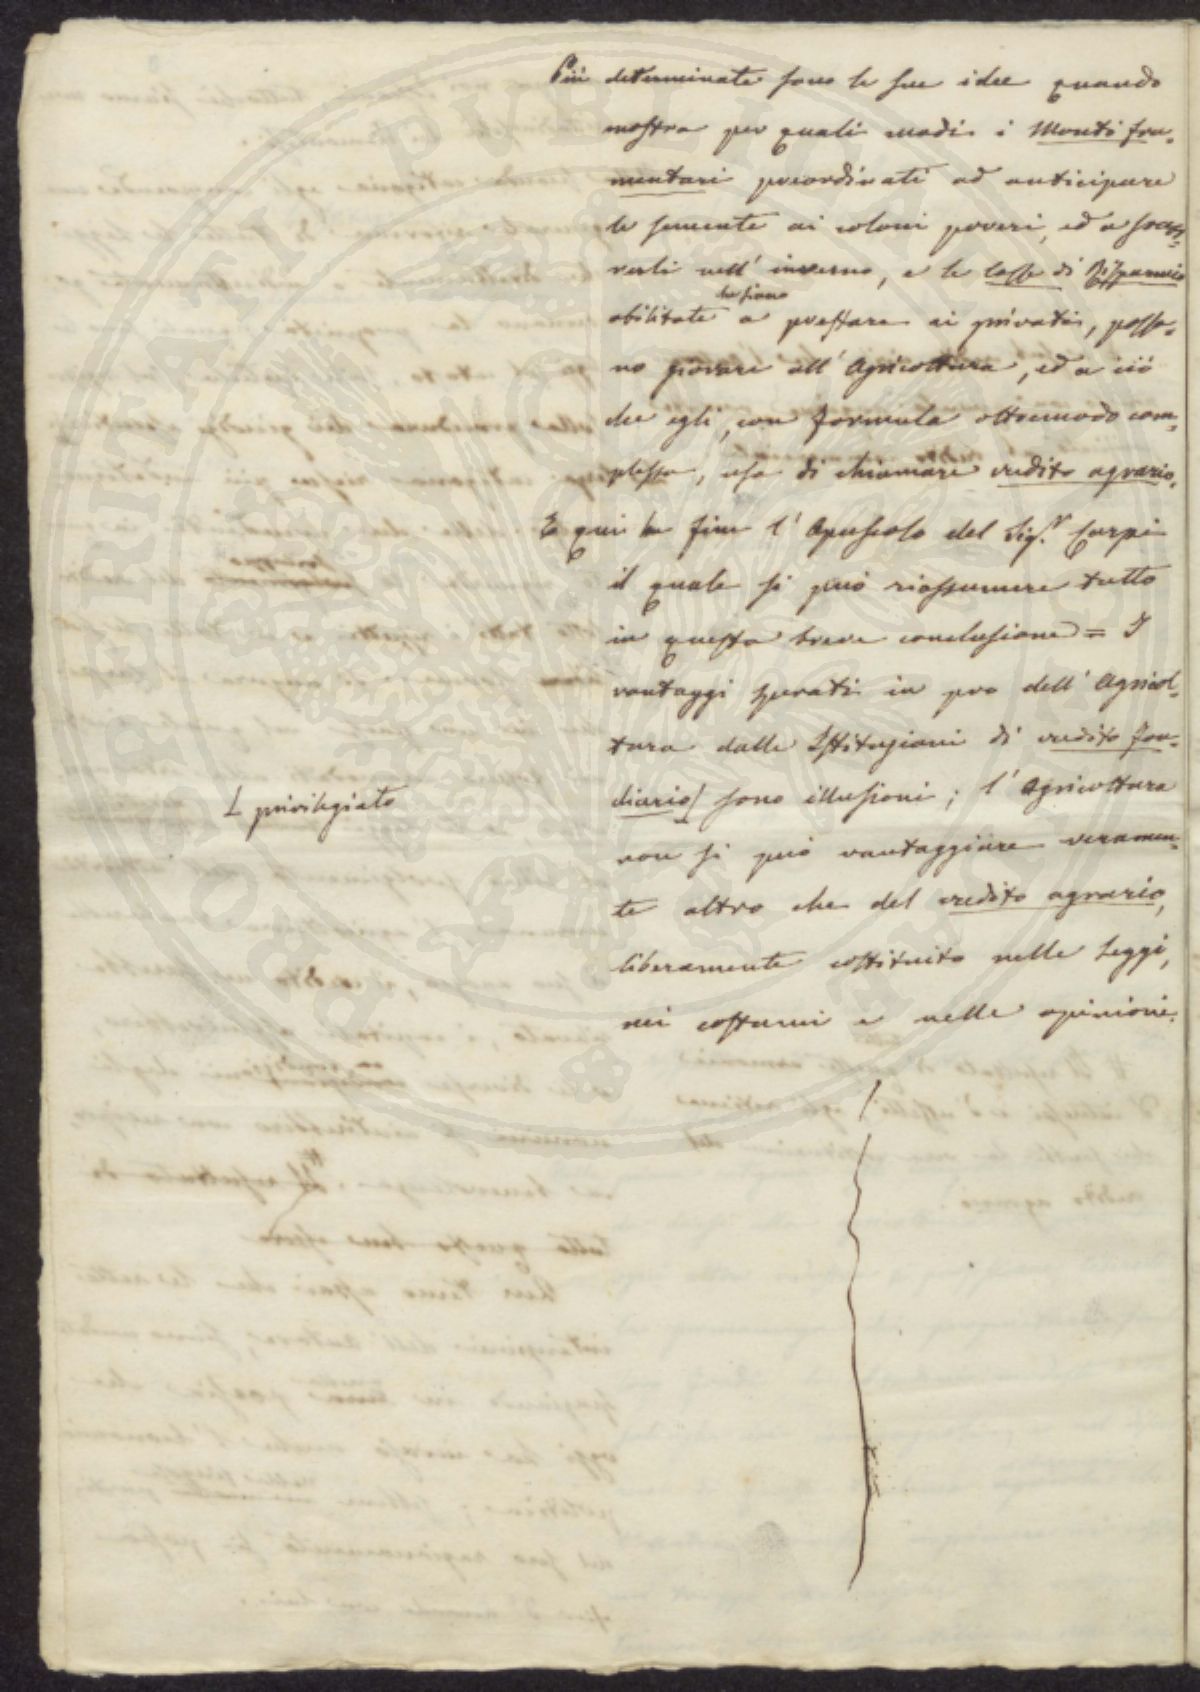 Più determinate sono le sue idee quando
mostra per quali modi i Monti fru-
mentari preordinati ad anticipare
le semente ai coloni poveri, ed a sovve-
nirli nell' inverno, e le Casse di Risparmio
che siano
abilitate a prestare ai privati, posso-
no giovare all' Agricoltura, ed a ciò
che egli, con formula oltremodo com-
plessa, usa di chiamare credito agrario.
E qui ha fine l' Opuscolo del Sig.r Carpi
il quale si può riassumere tutto
in questa breve conclusione = I
vantaggi sperati in pro dell' Agricol-
tura dalle Istituzioni di credito fon-
diario sono illusioni; l' Agricoltura
privilegiato
non si può vantaggiare veramen-
te altro che del credito agrario,
liberamente costituito nelle Leggi,
nei costumi e nelle opinioni.
PROSPERITATI PUBLICAE AUGENDAE